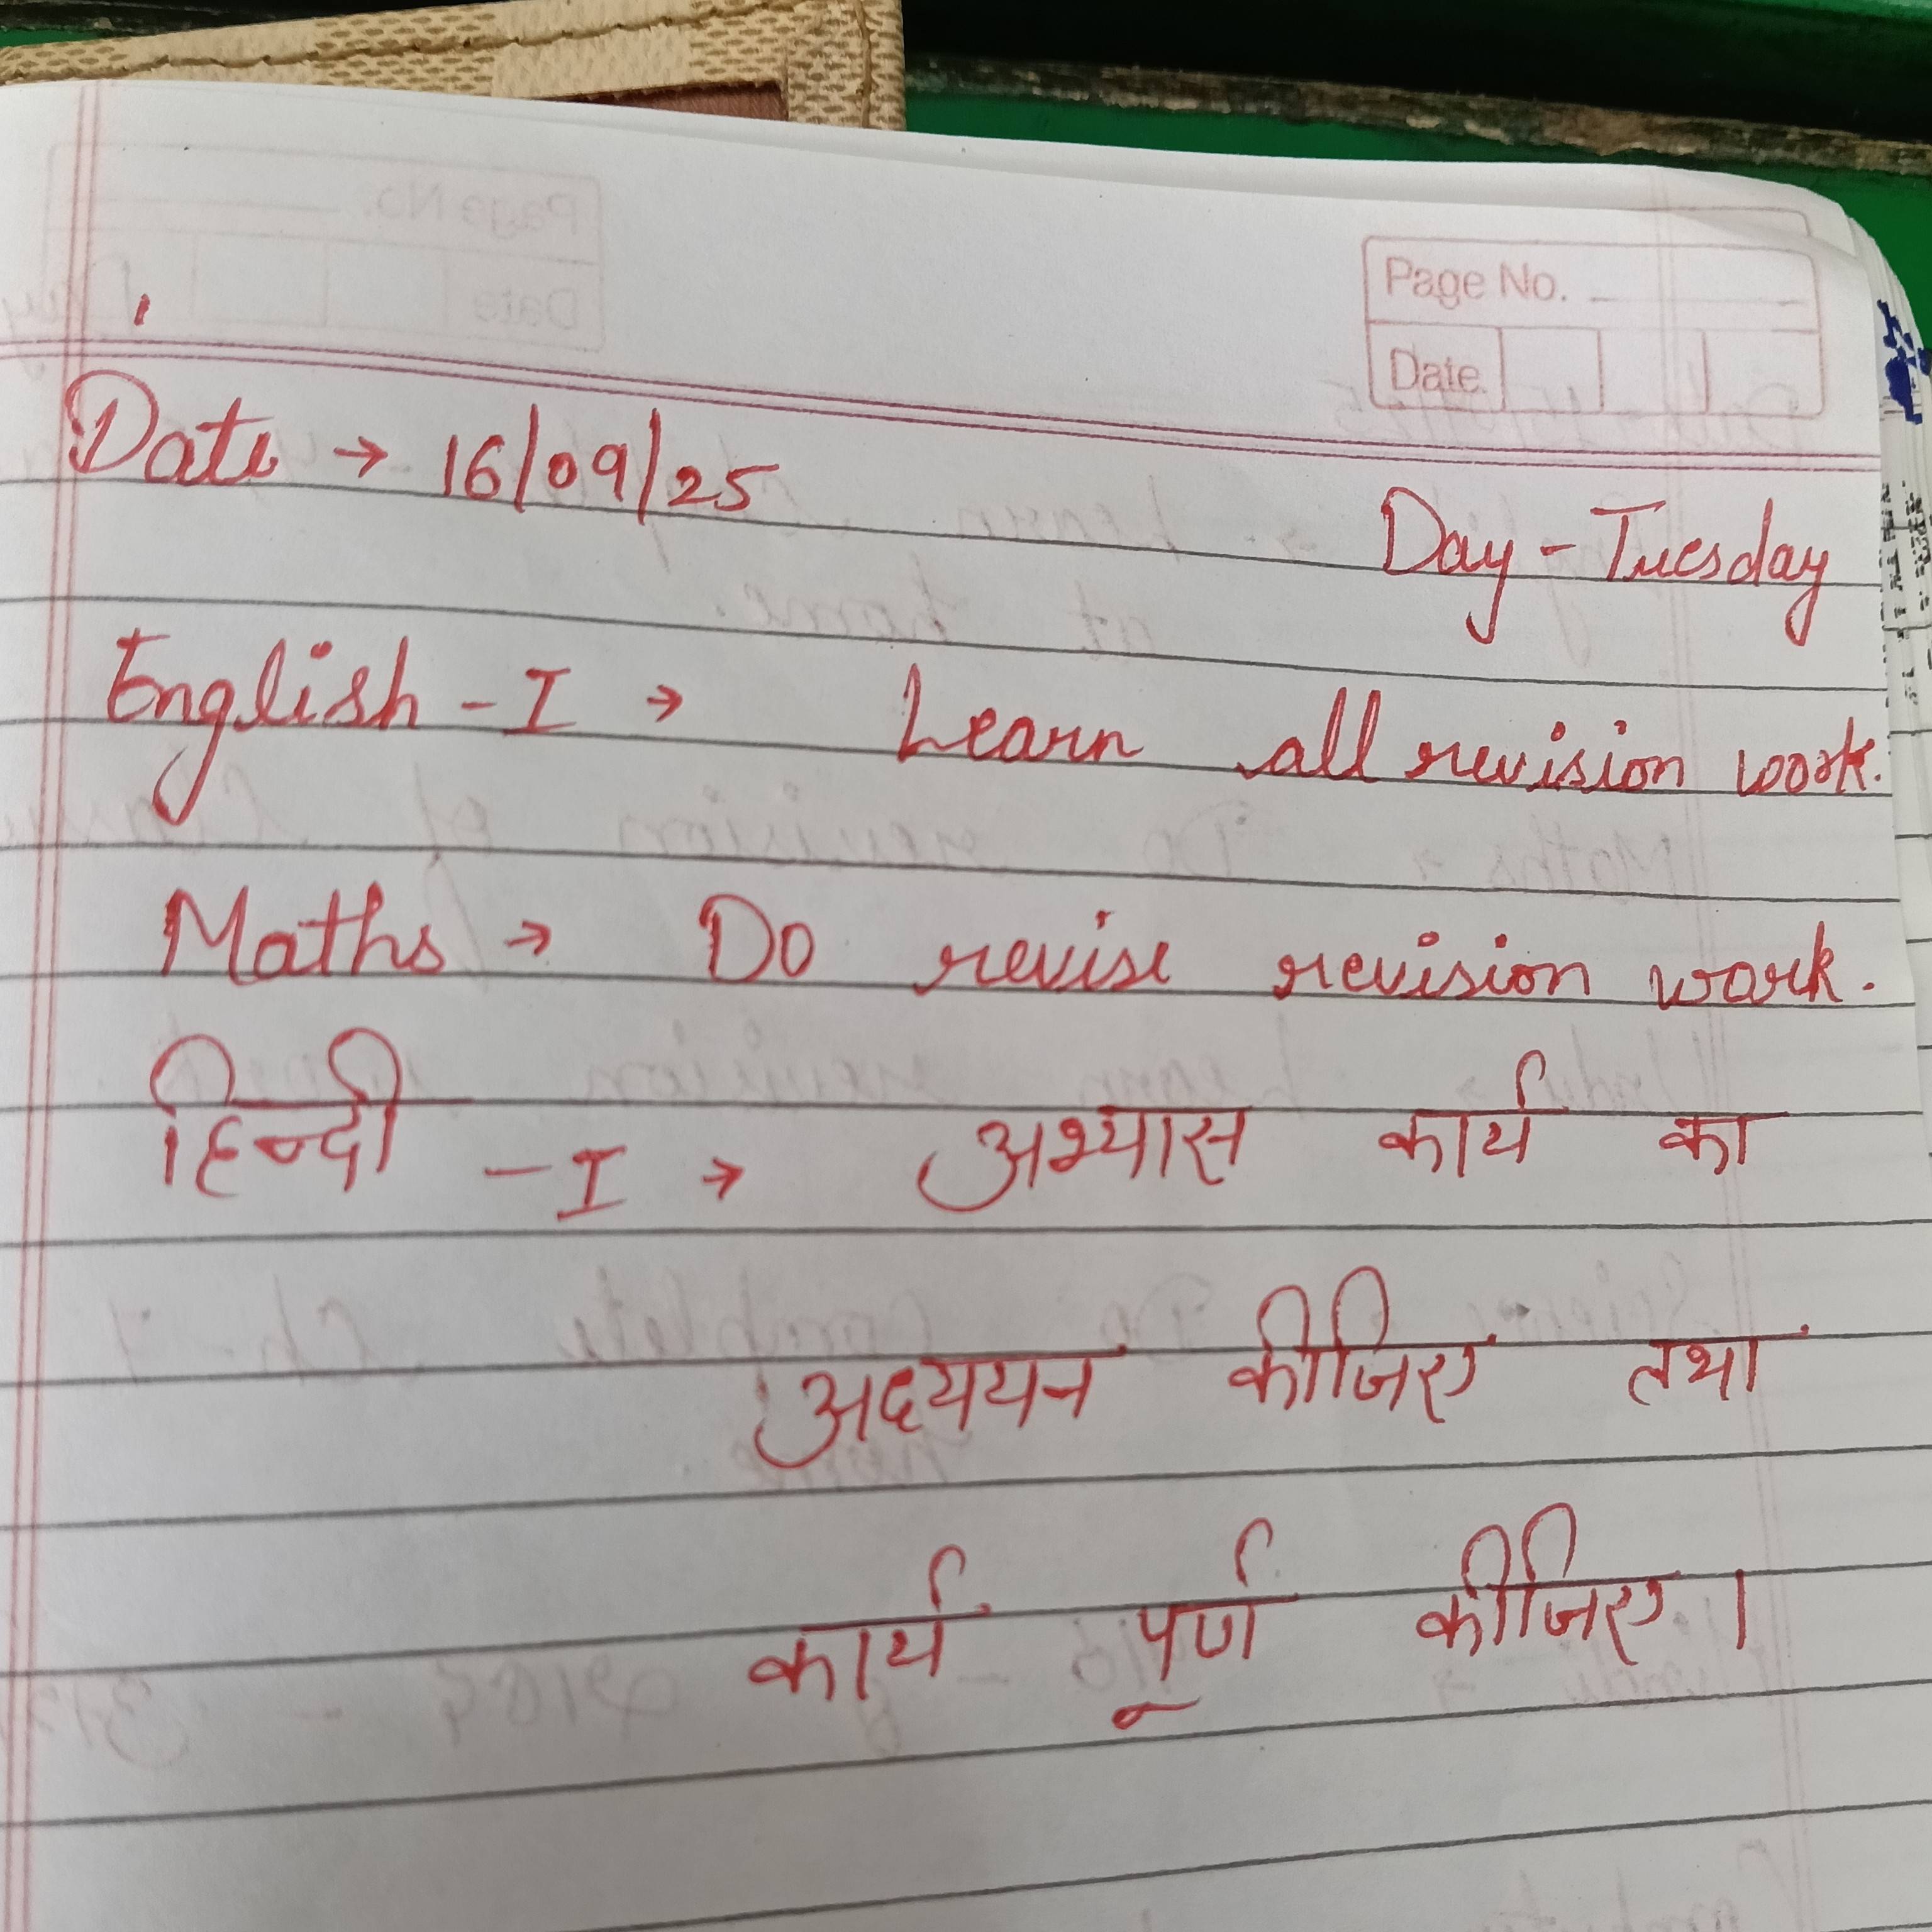 Page No.
Date
Date → 16/09/25
Day - Tuesday
English - I → Learn all revision work.
Maths → Do revise revision work.
हिन्दी - I → अभ्यास कार्य का
अध्ययन कीजिए तथा
कार्य पूर्ण कीजिए।